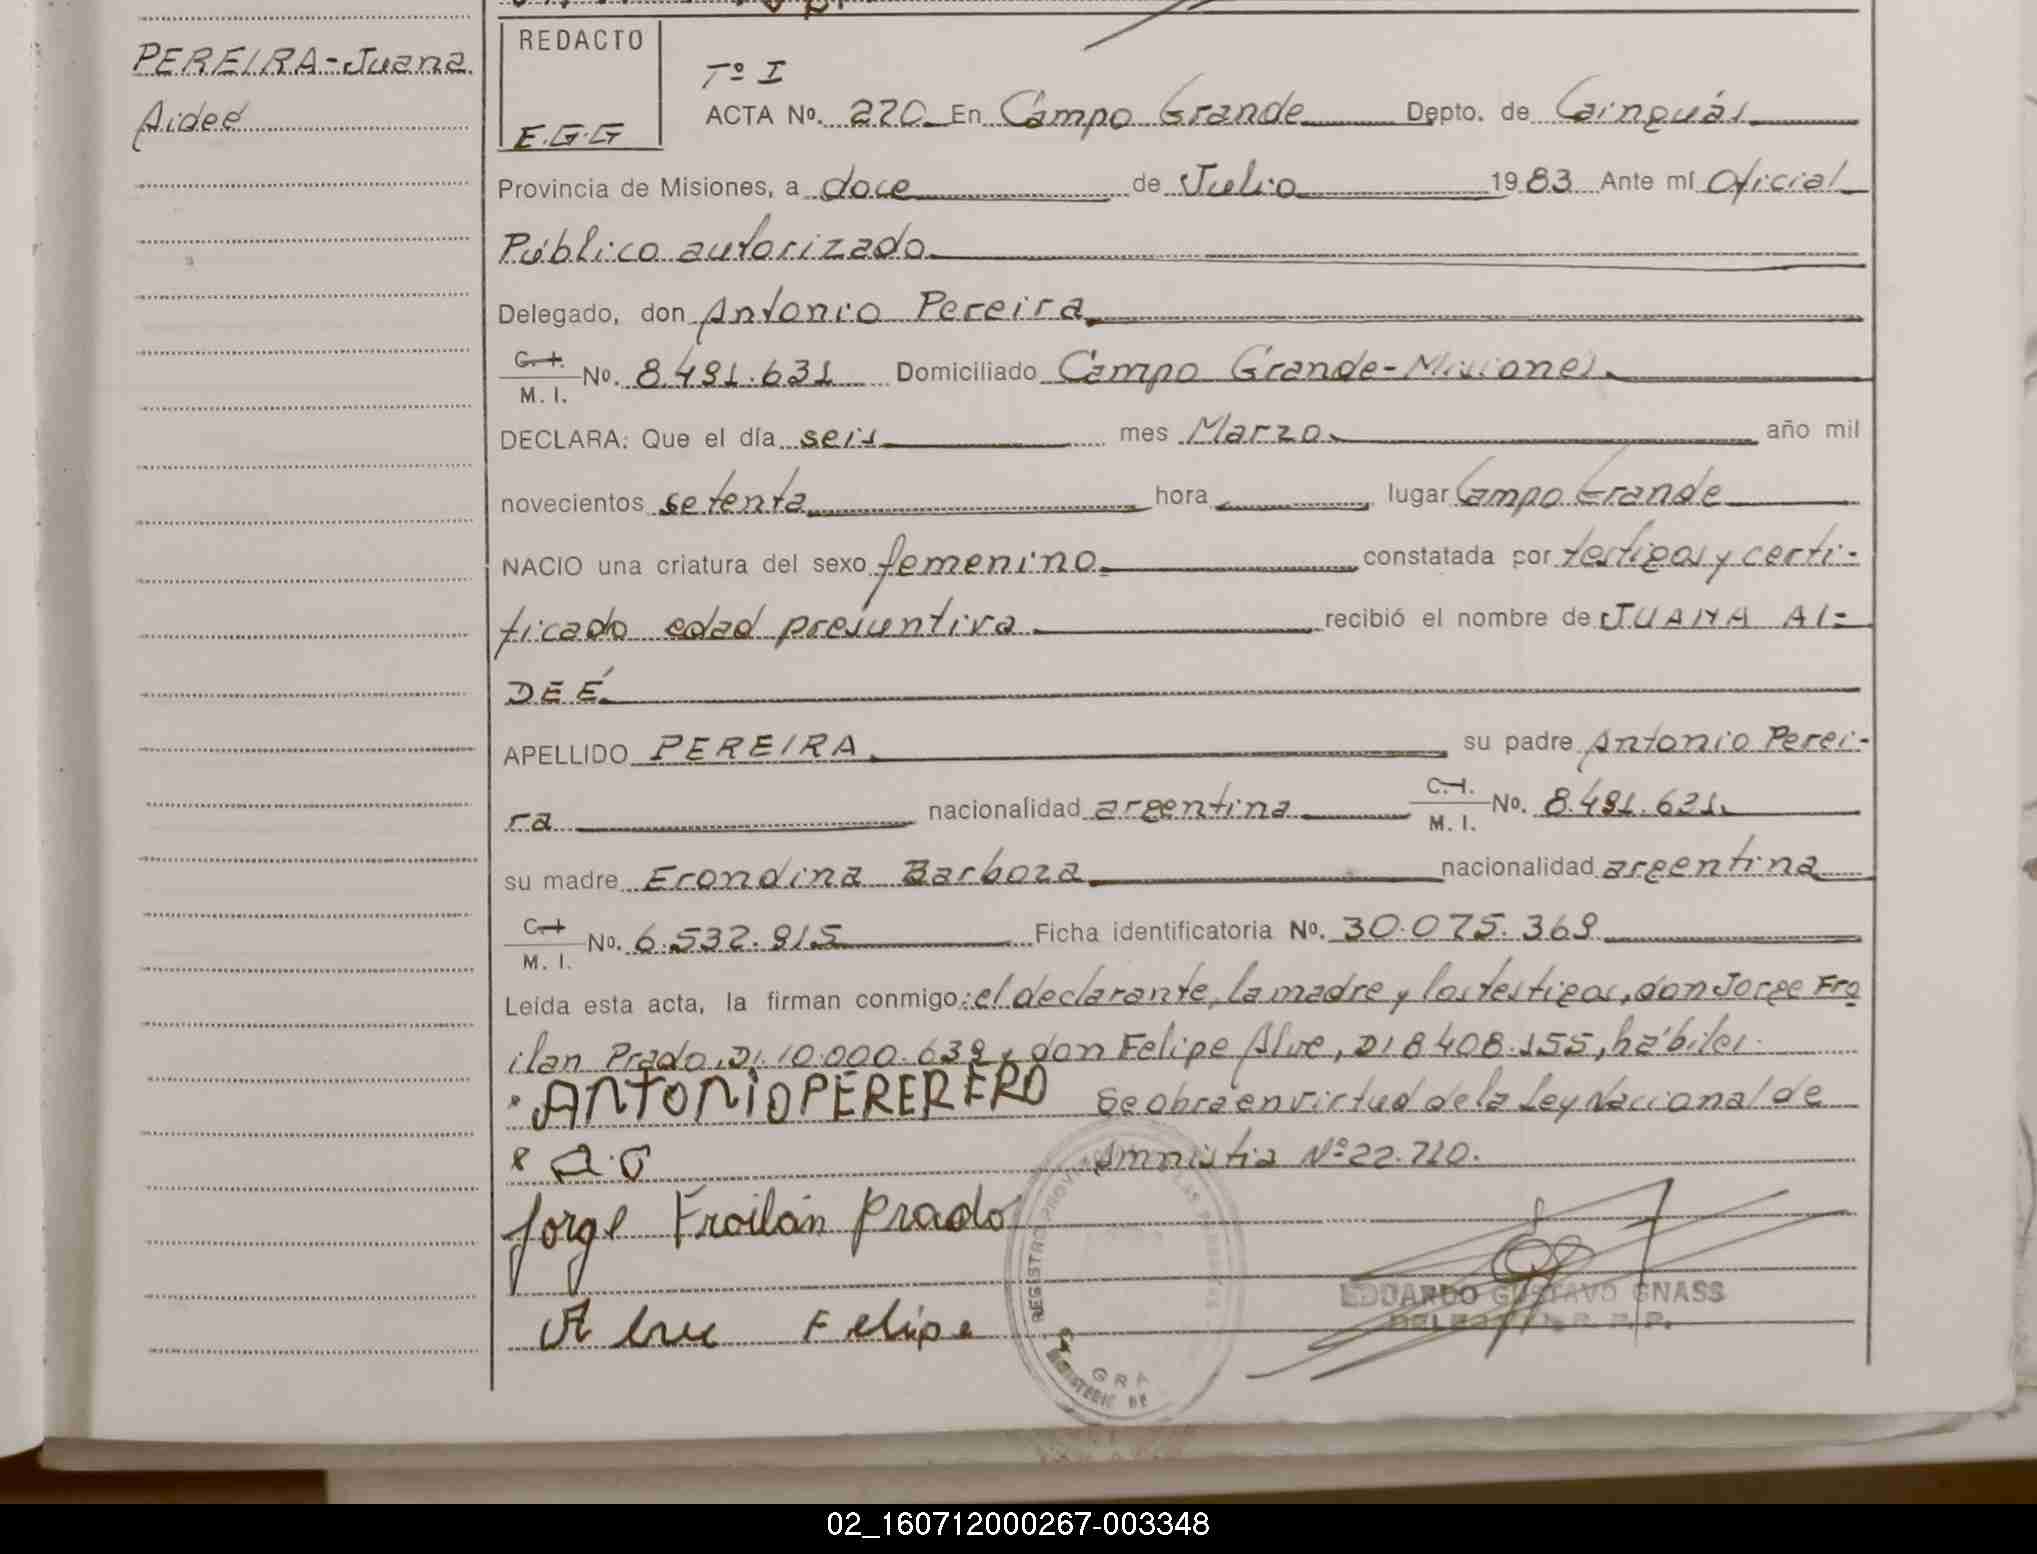 PEREIRA-Juana
Aideé
REDACTO
E.G.G
Tº I
ACTA Nº. 220 En Campo Grande Depto. de Cainguás
Provincia de Misiones, a doce de Julio 1983 Ante mí Oficial
Público autorizado
Delegado, don Antonio Pereira
C.I. M.I. Nº. 8.491.631 Domiciliado Campo Grande-Misiones
DECLARA: Que el día seis mes Marzo año mil
novecientos setenta hora lugar Campo Grande
NACIO una criatura del sexo femenino constatada por testigos y certi-
ficado edad presuntiva recibió el nombre de JUANA AI-
DEÉ
APELLIDO PEREIRA su padre Antonio Perei-
ra nacionalidad argentina C.I. M.I. Nº. 8.491.631
su madre Erondina Barboza nacionalidad argentina
C.I. M.I. Nº. 6.532.915 Ficha identificatoria Nº. 30.075.369
Leída esta acta, la firman conmigo: el declarante, la madre y los testigos, don Jorge Fro
ilan Prado, DI. 10.000.639 y don Felipe Alve, DI 8408.155, hábiles.
ANTONIO PERERERO Se obra en virtud de la Ley Nacional de
Amnistia Nº 22.710.
Jorge Froilán Prado
EDUARDO GUSTAVO GNASS
Alve Felipe
DELEGADO R. P. P.
REGISTRO PROVINCIAL DE LAS PERSONAS
MINISTERIO DE
02_160712000267-003348